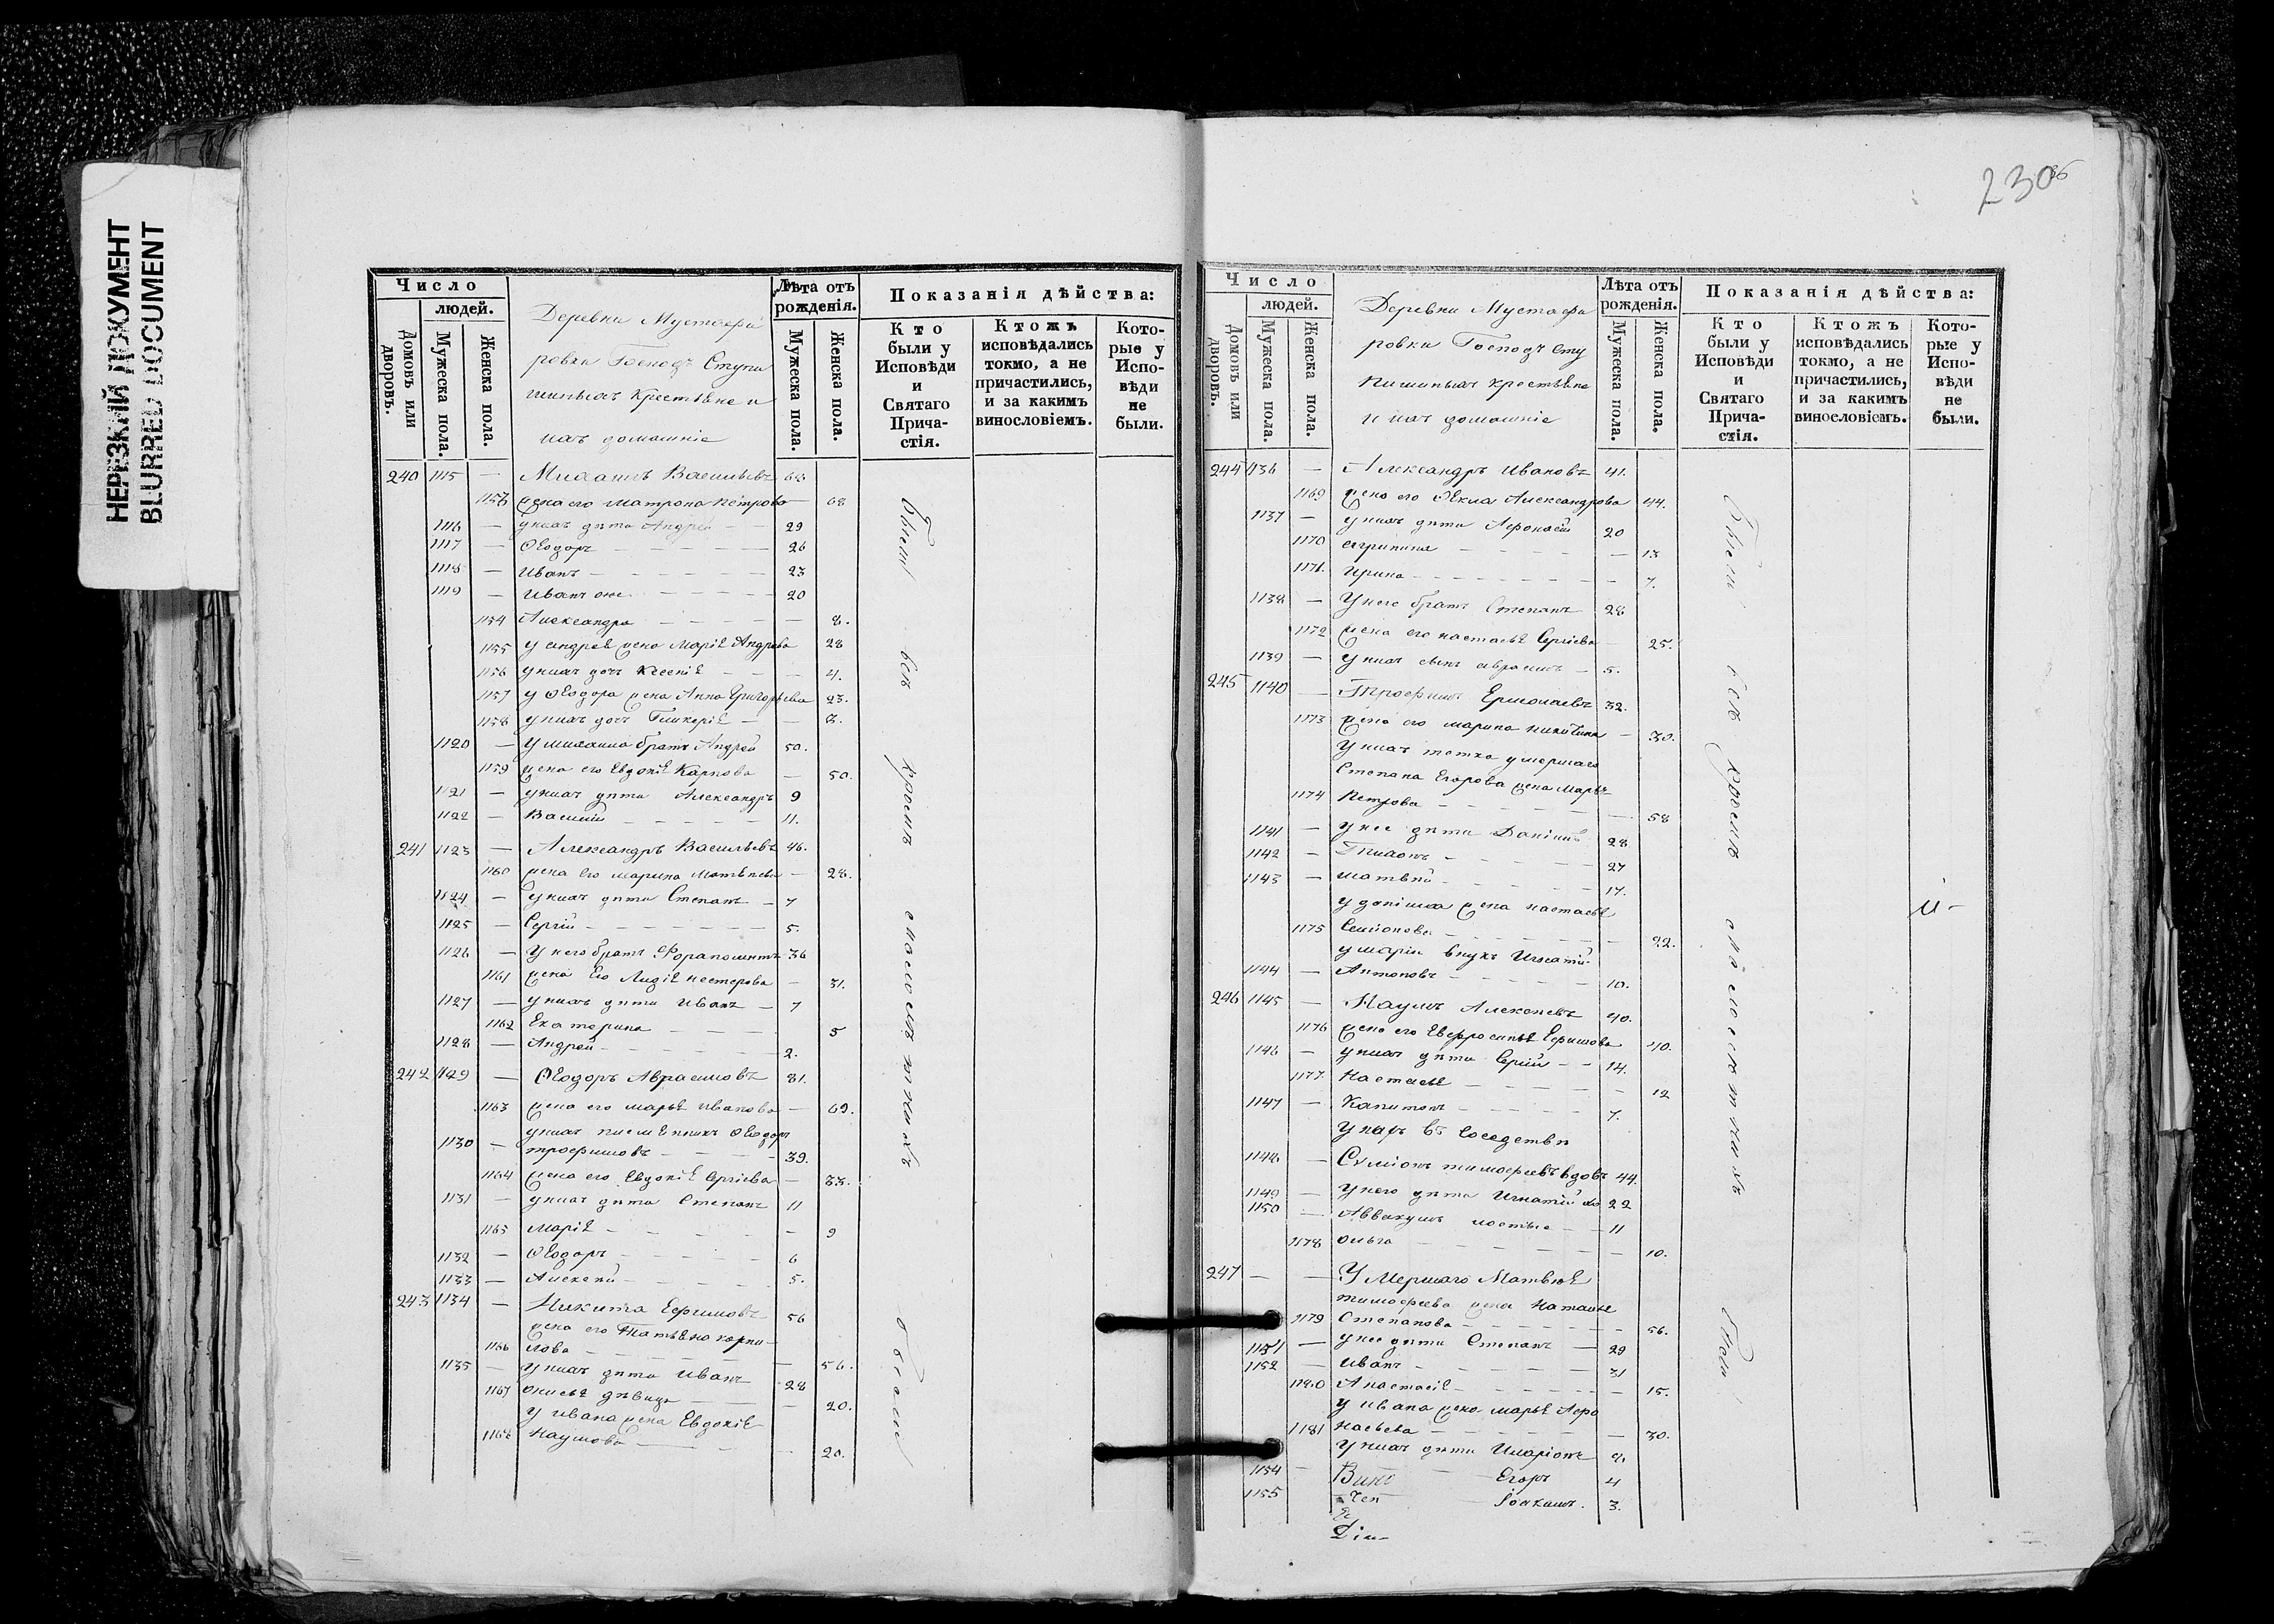 НЕРЕЗКИЙ ДОКУМЕНТ
BLURRED DOCUMENT
Число
людей.
Домовъ или дворовъ.
Мужеска пола.
Женска пола.
Деревни Мустафи
ровки Господъ Ступи
шиныхъ Крестьяне и
ихъ домашніе
Лѣта отъ рожденія.
Мужеска пола.
Женска пола.
Показанія дѣйства:
Кто были у Исповѣди и Святаго Причастія.
Ктожъ исповѣдались токмо, а не причастились, и за какимъ винословіемъ.
Которые у Исповѣди не были.
240 1115 — Михаилъ Васильевъ 68
1153 жена его Матрона Петрова — 68
1116 — у нихъ дѣти Андрей — — 29
1117 — Ѳеодоръ — 26
1118 — Иванъ — 23
1119 — Иванъ же — 20
1154 Александра — 8.
1155 у Андрея жена Марія Андреева 28
1156 у нихъ дочь Ксенія — 4.
1157 у Ѳеодора жена Анна Григорьева 23.
1158 у нихъ дочь Гликерія — 3.
1120 — У Михаила братъ Андрей 50.
1159 жена его Евдокія Карпова — 50.
1121 — у нихъ дѣти Александръ 9
1122 — Василій — 11.
241 1123 — Александръ Васильевъ 46.
1160 жена его Марина Матвѣева — 28.
1124 — у нихъ дѣти Степанъ — 7
1125 — Сергій — 5.
1126 — У него братъ Ферапонтъ 36
1161 жена его Лидія Нестерова — 31.
1127 — у нихъ дѣти Иванъ — 7
1162 Екатерина — 5
1128 — Андрей — 2.
242 1129 — Ѳеодоръ Аврамовъ 81.
1163 жена его Марья Иванова — 69.
у нихъ племянникъ Ѳеодоръ
1130 — Трофимовъ — 39.
1164 жена его Евдокія Сергіева — 33.
1131 — у нихъ дѣти Степанъ 11
1165 Марія — 9
1132 — Ѳеодоръ — 6
1133 — Алексѣй — 5.
243 1134 — Никита Ефимовъ 56
жена его Татьяна Корни-
1166 лова — 56.
1135 — У нихъ дѣти Иванъ 28
1167 девица — 20.
У Ивана жена Евдокія
1168 Наумова — 20.
Были всѣ кромѣ
230
Число
людей.
Домовъ или дворовъ.
Мужеска пола.
Женска пола.
Деревни Мустафи
ровки Господъ Сту
пишиныхъ крестьяне
и ихъ домашніе
Лѣта отъ рожденія.
Мужеска пола.
Женска пола.
Показанія дѣйства:
Кто были у Исповѣди и Святаго Причастія.
Ктожъ исповѣдались токмо, а не причастились, и за какимъ винословіемъ.
Которые у Исповѣди не были.
244 1136 — Александръ Ивановъ 41.
1169 жена его Ѳекла Александрова 44.
1137 — у нихъ дѣти Афонасій 20
1170 Агрипина — 13
1171. Ирина — 7.
1138 — У него братъ Степанъ 28
1172 жена его Настасья Сергіева — 25.
1139 — у нихъ сынъ Аврамъ — 5.
245 1140 — Трофимъ Ермолаевъ 32.
1173 жена его Марина Никитина — 30.
У нихъ тетка умершаго
Степана Егорова жена Марья
1174 Петрова — 58
1141 — у нее дѣти Даніилъ 28
1142 — Тихонъ — 27
1143 — Матвѣй — 17.
у Даніила жена Настасья
1175 Семіонова — 22.
у Маріи внукъ Игнатій
1144 — Антоновъ — 10.
246 1145 — Наумъ Алексѣевъ 40.
1176 жена его Евфросинья Ефимова 40.
1146 — у нихъ дѣти Сергій — 14.
1177 Настасья — 12
1147 — Капитонъ — 7.
У нихъ въ соседстве
1148 — Сѵміонъ Тимофеевъ вдовъ 44.
1149 — У него дѣти Игнатій 22
1150 — Аввакумъ — 11
1178 Ольга — 10.
247 — — Умершаго Матвея
Тимофеева жена Наталья
1179 Степанова — 56.
1151 — у нее дѣти Степанъ — 29
1152 — Иванъ — 31
1180 Анастасія — 15.
У Ивана жена Марья Афо
1181 насьева — 30.
У нихъ дѣти Иларіонъ 9.
1154 — Егоръ 4
1155 Іоакимъ. 3.
Діа-
Были всѣ кромѣ